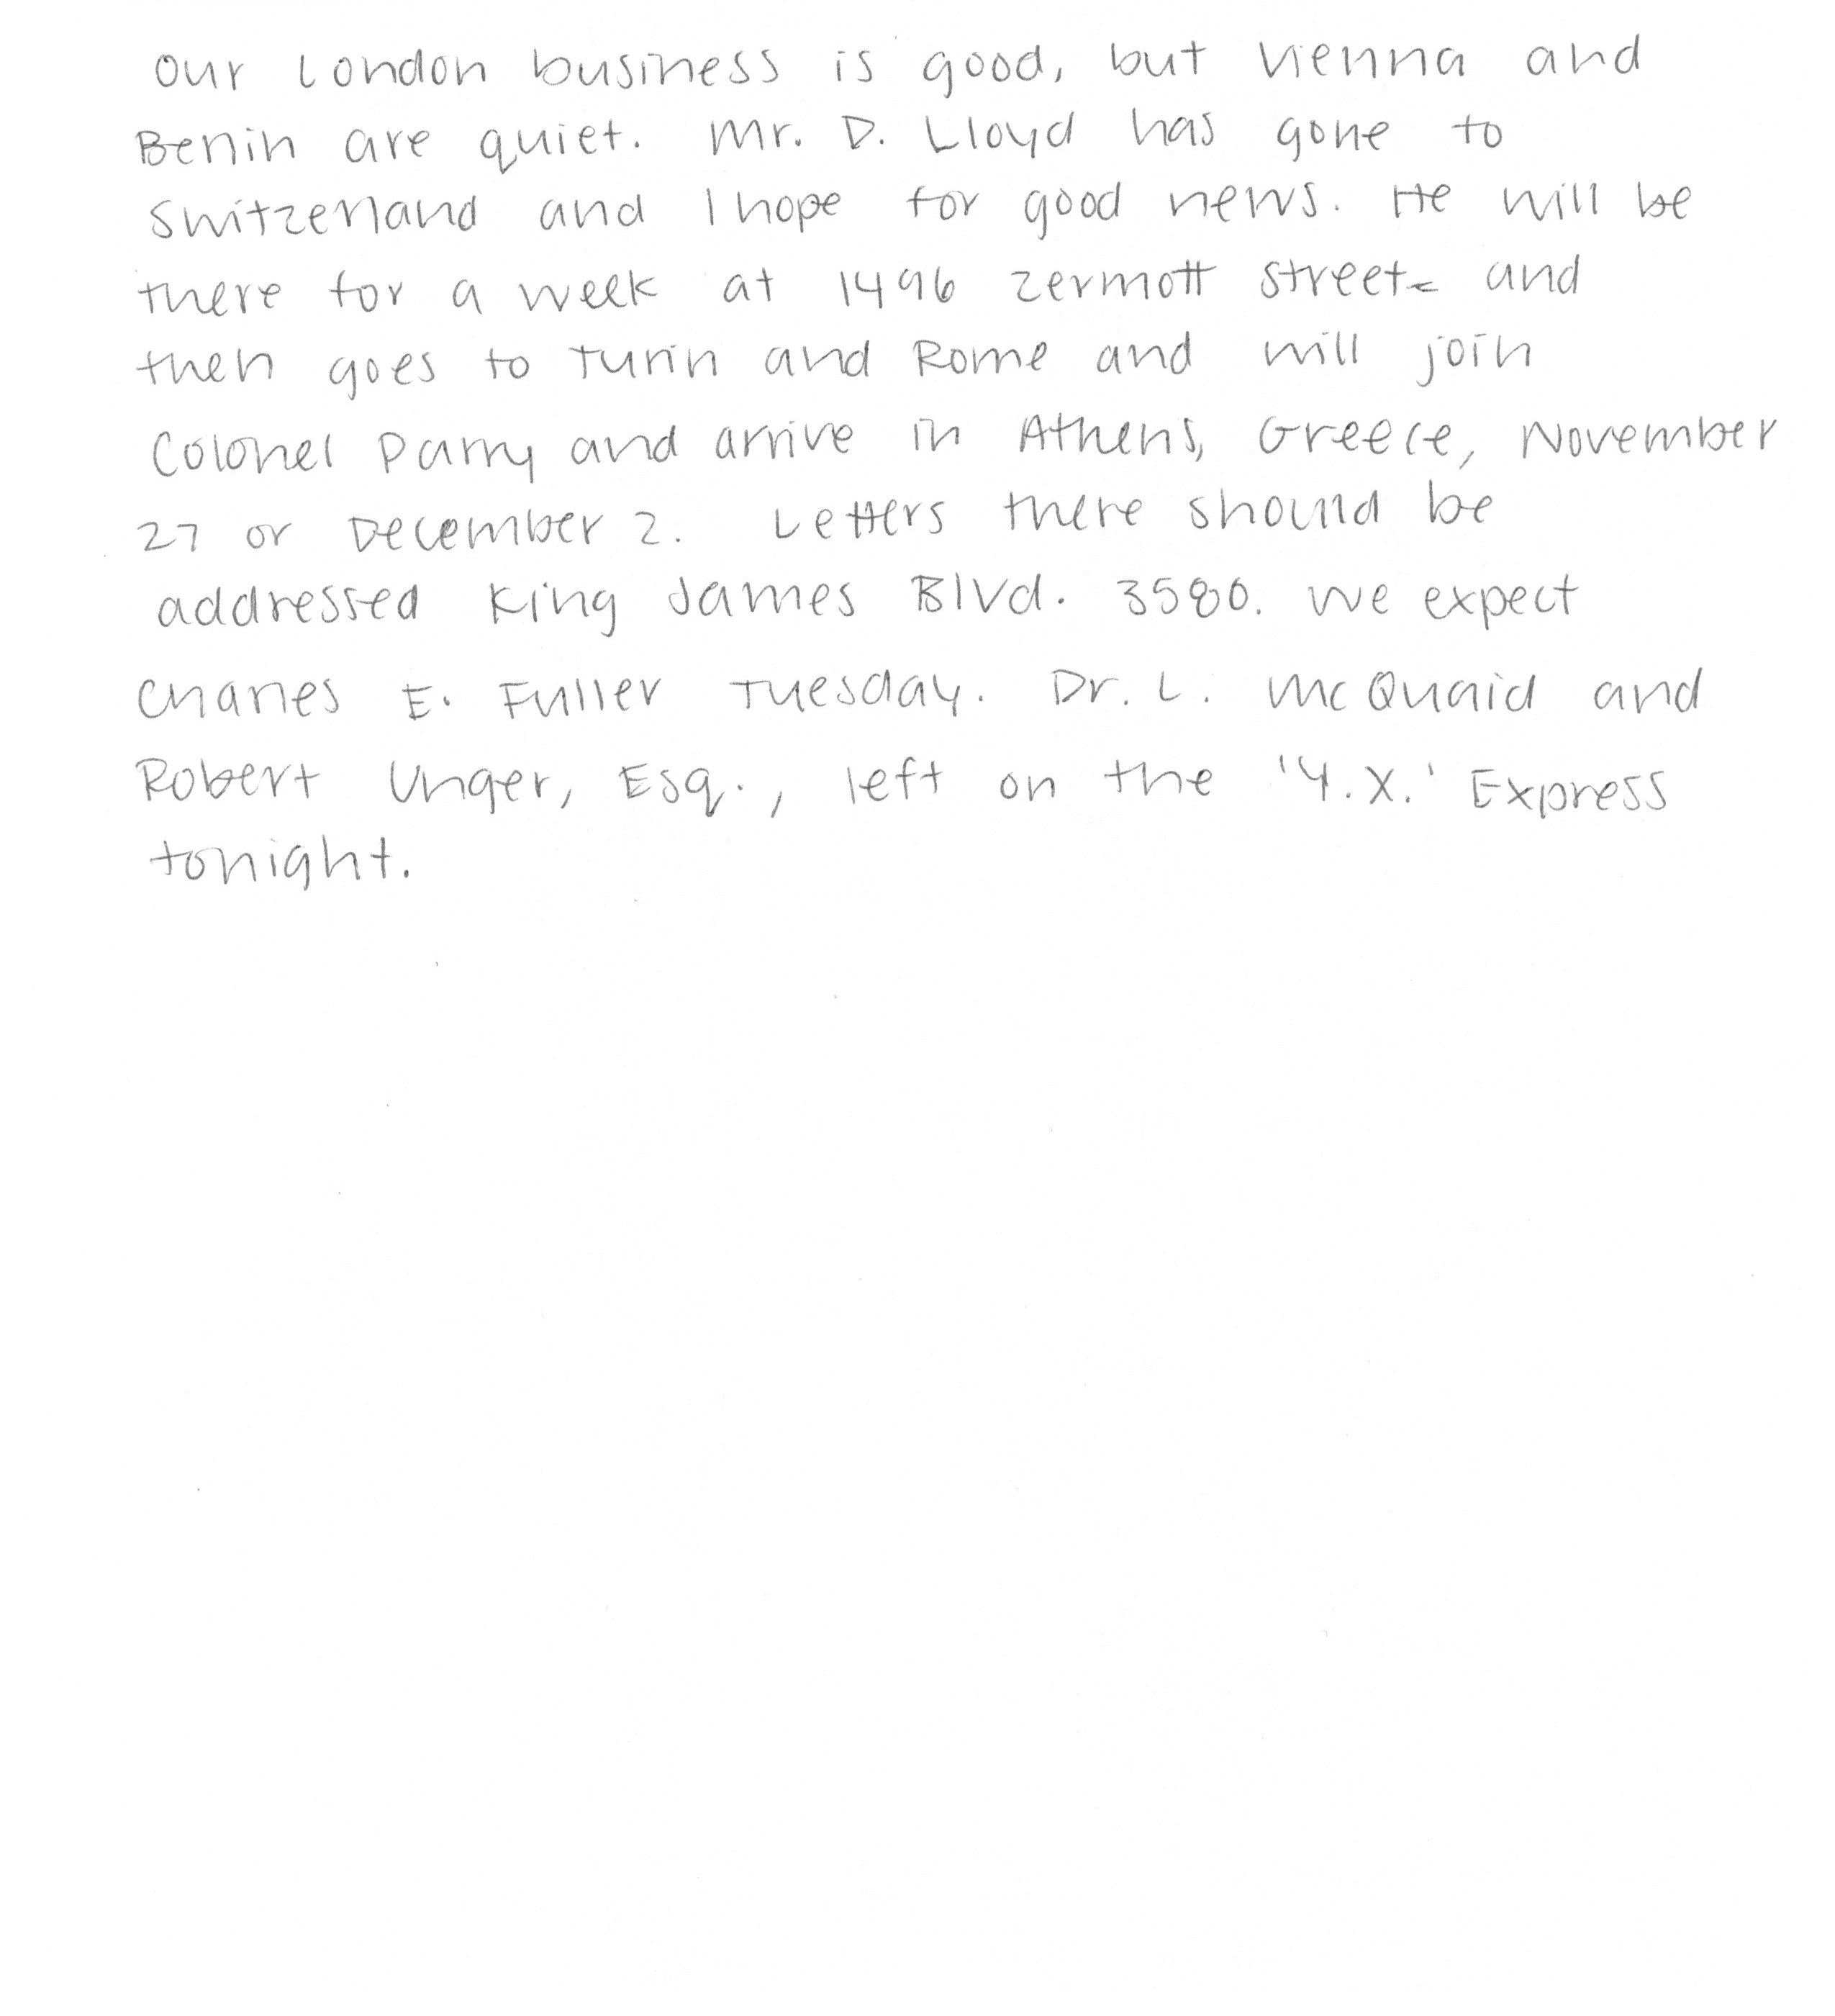 Our London business is good, but Vienna and
Benin are quiet. Mr. D. Lloyd has gone to
Switzerland and I hope for good news. He will be
there for a week at 1496 Zermott Street and
then goes to Turin and Rome and will join
Colonel Parry and arrive in Athens, Greece, November
27 or December 2. Letters there should be
addressed King James Blvd. 3580. We expect
Charles E. Fuller Tuesday. Dr. L. McQuaid and
Robert Unger, Esq., left on the 'Y.X.' Express
tonight.